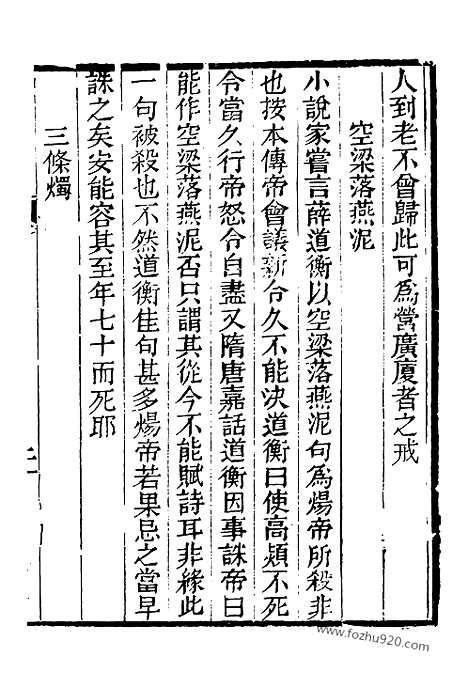 人到老不曾歸此可爲營廣廈者之戒
空梁落燕泥
小說家嘗言薛道衡以空梁落燕泥句爲煬帝所殺非
也按本傳帝會議新令久不能決道衡曰使高熲不死
令當久行帝怒令自盡又隋唐嘉話道衡因事誅帝曰
能作空梁落燕泥否只謂其從今不能賦詩耳非緣此
一句被殺也不然道衡佳句甚多煬帝若果忌之當早
誅之矣安能容其至年七十而死耶
三條燭
www.fozhu920.com